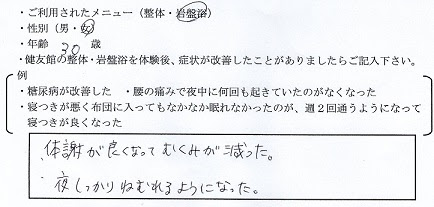 ・ご利用されたメニュー（整体・岩盤浴）
・性別（男・女）
・年齢 30 歳
・健友館の整体・岩盤浴を体験後、症状が改善したことがありましたらご記入下さい。
例
・糖尿病が改善した ・腰の痛みで夜中に何回も起きていたのがなくなった
・寝つきが悪く布団に入ってもなかなか眠れなかったのが、週２回通うようになって
寝つきが良くなった
・体謝が良くなってむくみが減った。
・夜しっかりねむれるようになった。